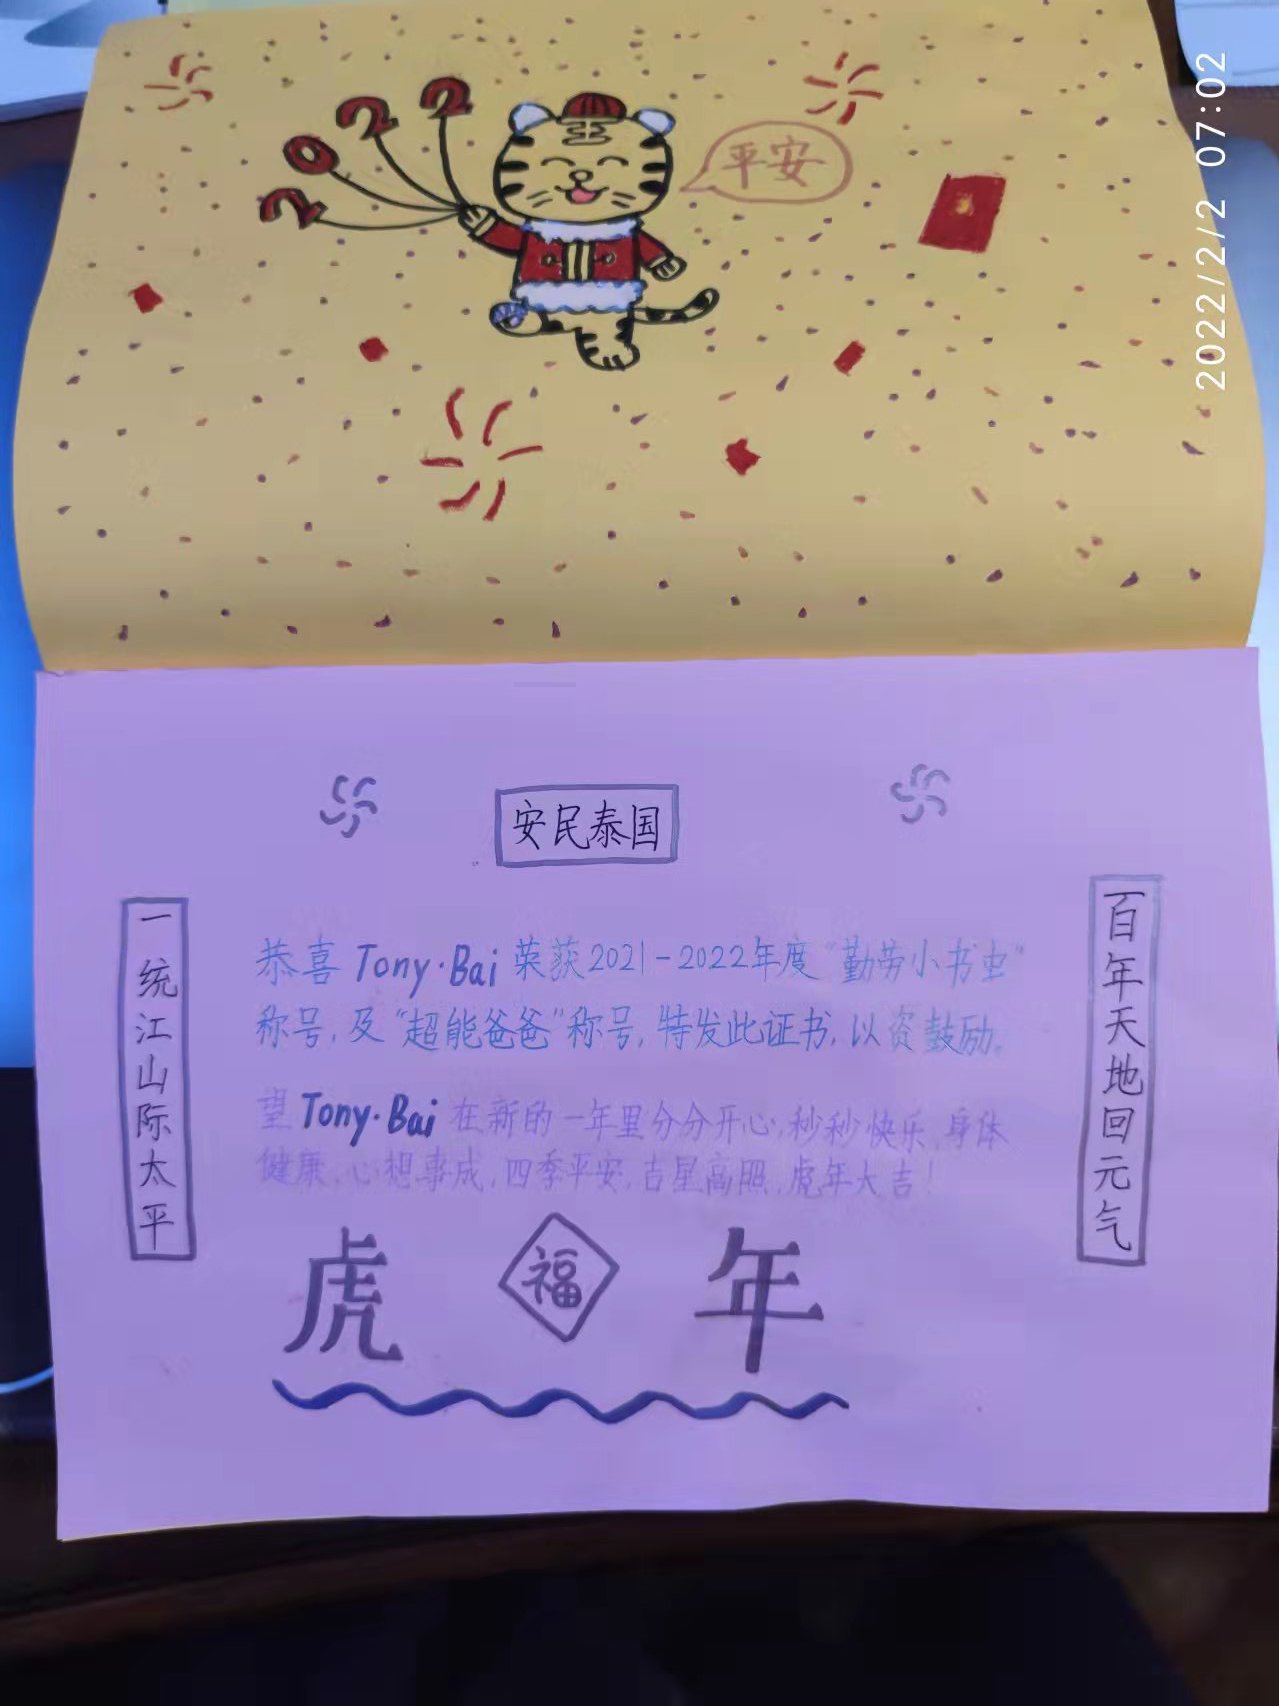 2022
平安
2022/2/2 07:02
安民泰国
百年天地回元气
一统江山际太平
恭喜 Tony·Bai 荣获2021-2022年度“勤劳小书虫”
称号,及“超能爸爸”称号,特发此证书,以资鼓励。
望 Tony·Bai 在新的一年里分分开心,秒秒快乐,身体
健康,心想事成,四季平安,吉星高照,虎年大吉!
虎 福 年